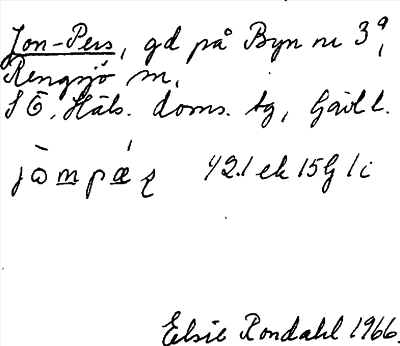 Jon-Pers, gd på Byn nr 3ª,
Rengsjö sn,
SÖ. Häls. doms. tg, Gävl l.
42.1 ek 15G 1i
Elsie Rondahl 1966.